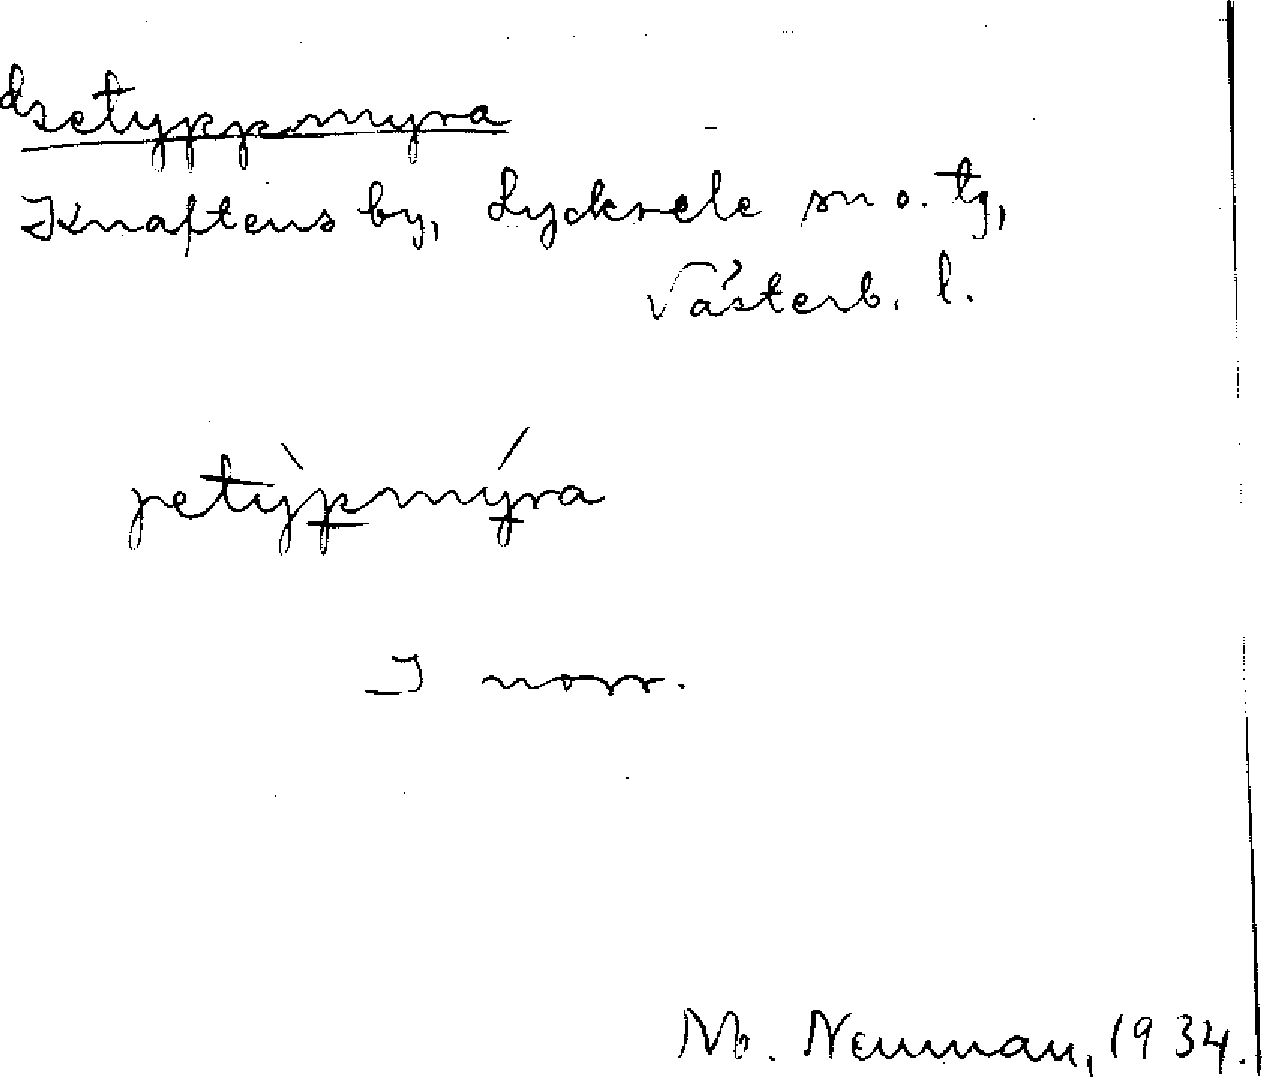 dsetyppmyra
Knaftens by, Lycksele sn o. tg,
Västerb. l.
jetỳpmýra
I norr.
M. Neuman, 1934.